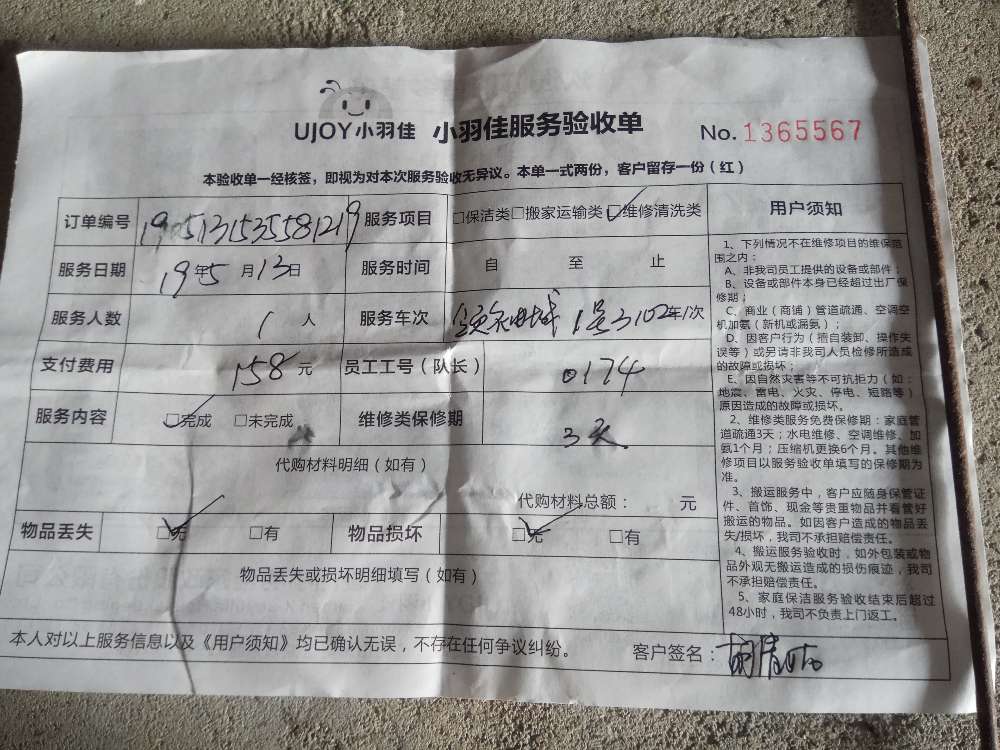 UJOY小羽佳 小羽佳服务验收单 No. 1365567
本验收单一经核签，即视为对本次服务验收无异议。本单一式两份，客户留存一份（红）
订单编号 1905131535581219 服务项目 □保洁类□搬家运输类□维修清洗类
服务日期 19年5月13日 服务时间 自 至 止
服务人数 1人 服务车次 1号3102 车/次
支付费用 158元 员工工号（队长） 0174
服务内容 □完成 □未完成 维修类保修期 3天
代购材料明细（如有）
代购材料总额： 元
物品丢失 □无 □有 物品损坏 □无 □有
物品丢失或损坏明细填写（如有）
本人对以上服务信息以及《用户须知》均已确认无误，不存在任何争议纠纷。 客户签名：
用户须知
1、下列情况不在维修项目的维保范
围之内：
A、非我司员工提供的设备或部件；
B、设备或部件本身已经超过出厂保
修期；
C、商业（商铺）管道疏通、空调空
机加氨（新机或漏氨）；
D、因客户行为（擅自装卸、操作失
误等）或另请非我司人员检修所造成
的故障或损坏；
E、因自然灾害等不可抗拒力（如：
地震、雷电、火灾、停电、短路等）
原因造成的故障或损坏。
2、维修类服务免费保修期：家庭管
道疏通3天；水电维修、空调维修、加
氨1个月；压缩机更换6个月。其他维
修项目以服务验收单填写的保修期为
准。
3、搬运服务中，客户应随身保管证
件、首饰、现金等贵重物品并看管好
搬运的物品。如因客户造成的物品丢
失/损坏，我司不承担赔偿责任。
4、搬运服务验收时，如外包装或物
品外观无搬运造成的损伤痕迹，我司
不承担赔偿责任。
5、家庭保洁服务验收结束后超过
48小时，我司不负责上门返工。